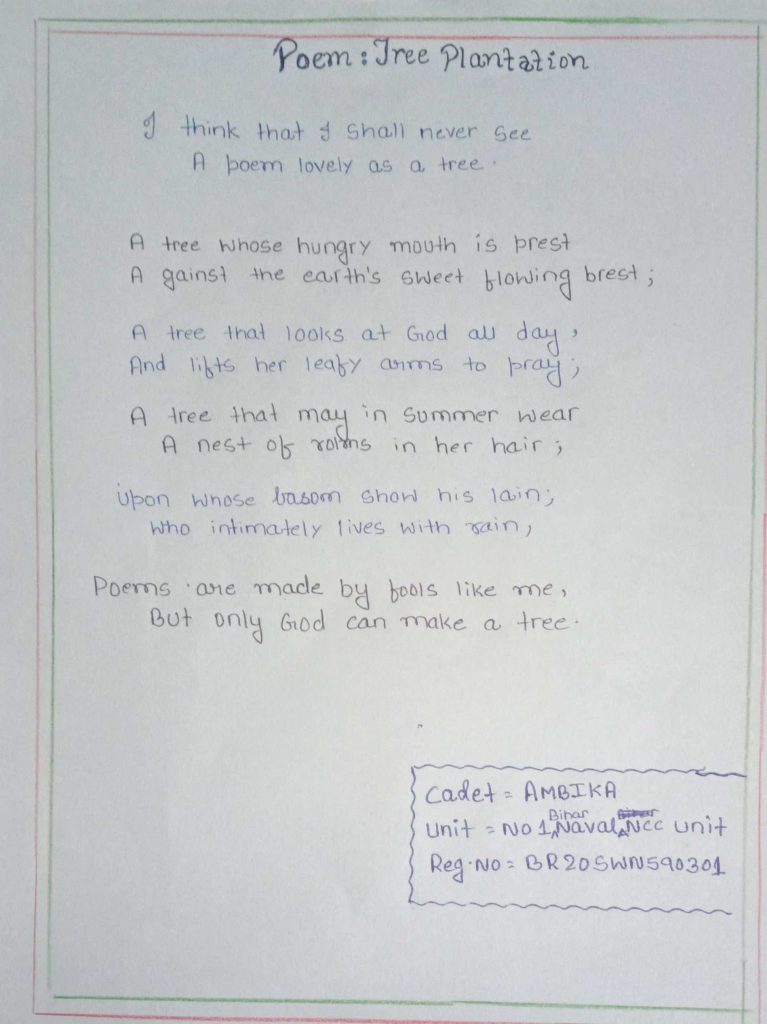 Poem : Tree Plantation
I think that I shall never see
A poem lovely as a tree.
A tree whose hungry mouth is prest
A gainst the earth's sweet flowing brest;
A tree that looks at God all day,
And lifts her leafy arms to pray;
A tree that may in summer wear
A nest of robins in her hair;
Upon whose basom show his lain;
Who intimately lives with rain;
Poems are made by fools like me,
But only God can make a tree.
Cadet = AMBIKA
Unit = No 1 Bihar Naval Ncc unit
Reg.No = BR20SWN590301